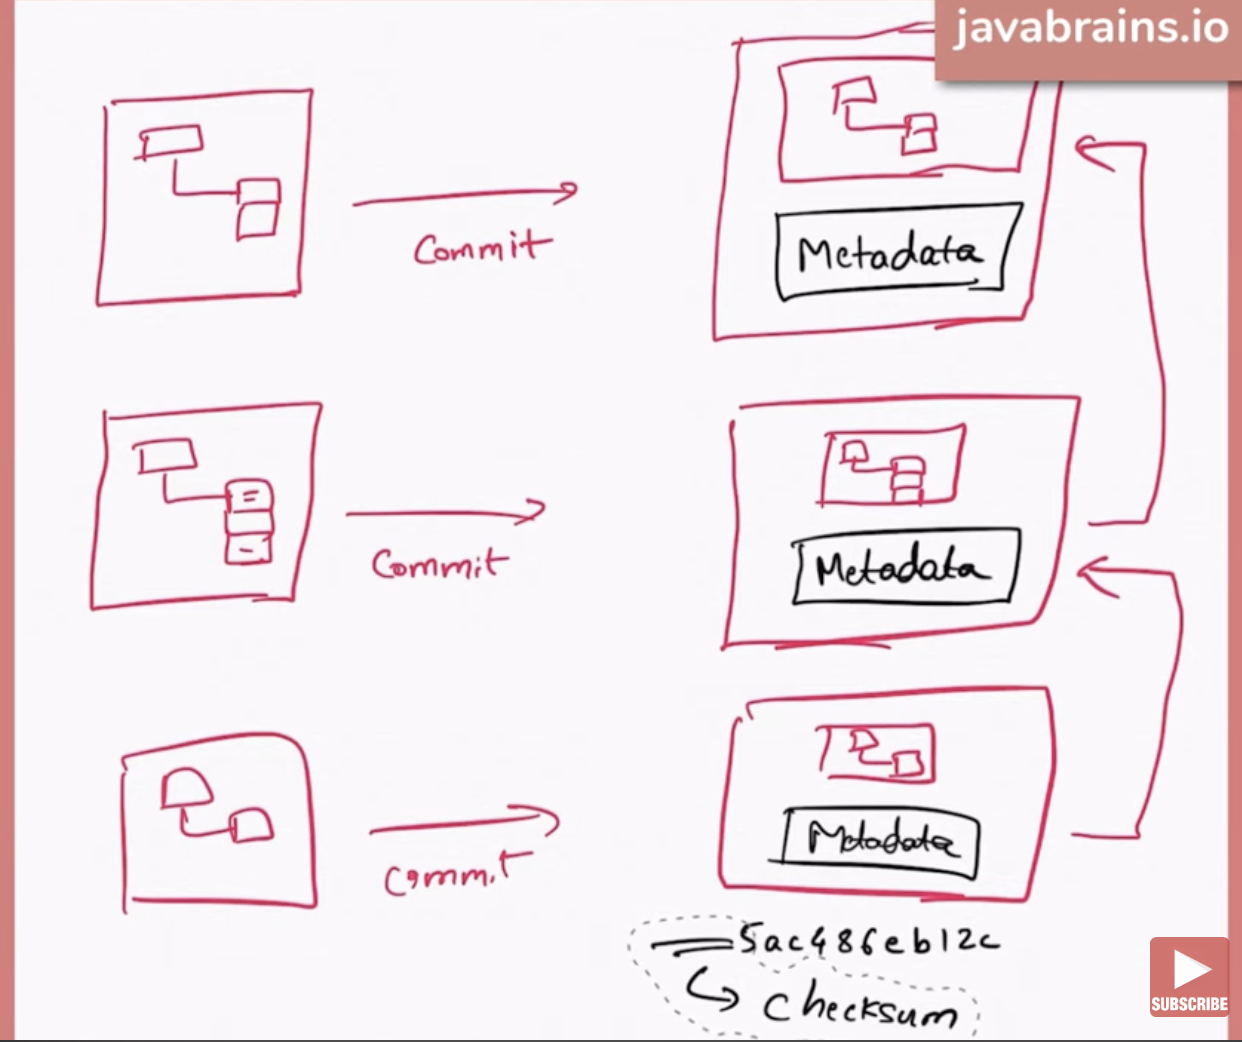 javabrains.io
Metadata
Commit
Metadata
Commit
Metadata
Commit
5ac486eb12c
checksum
SUBSCRIBE